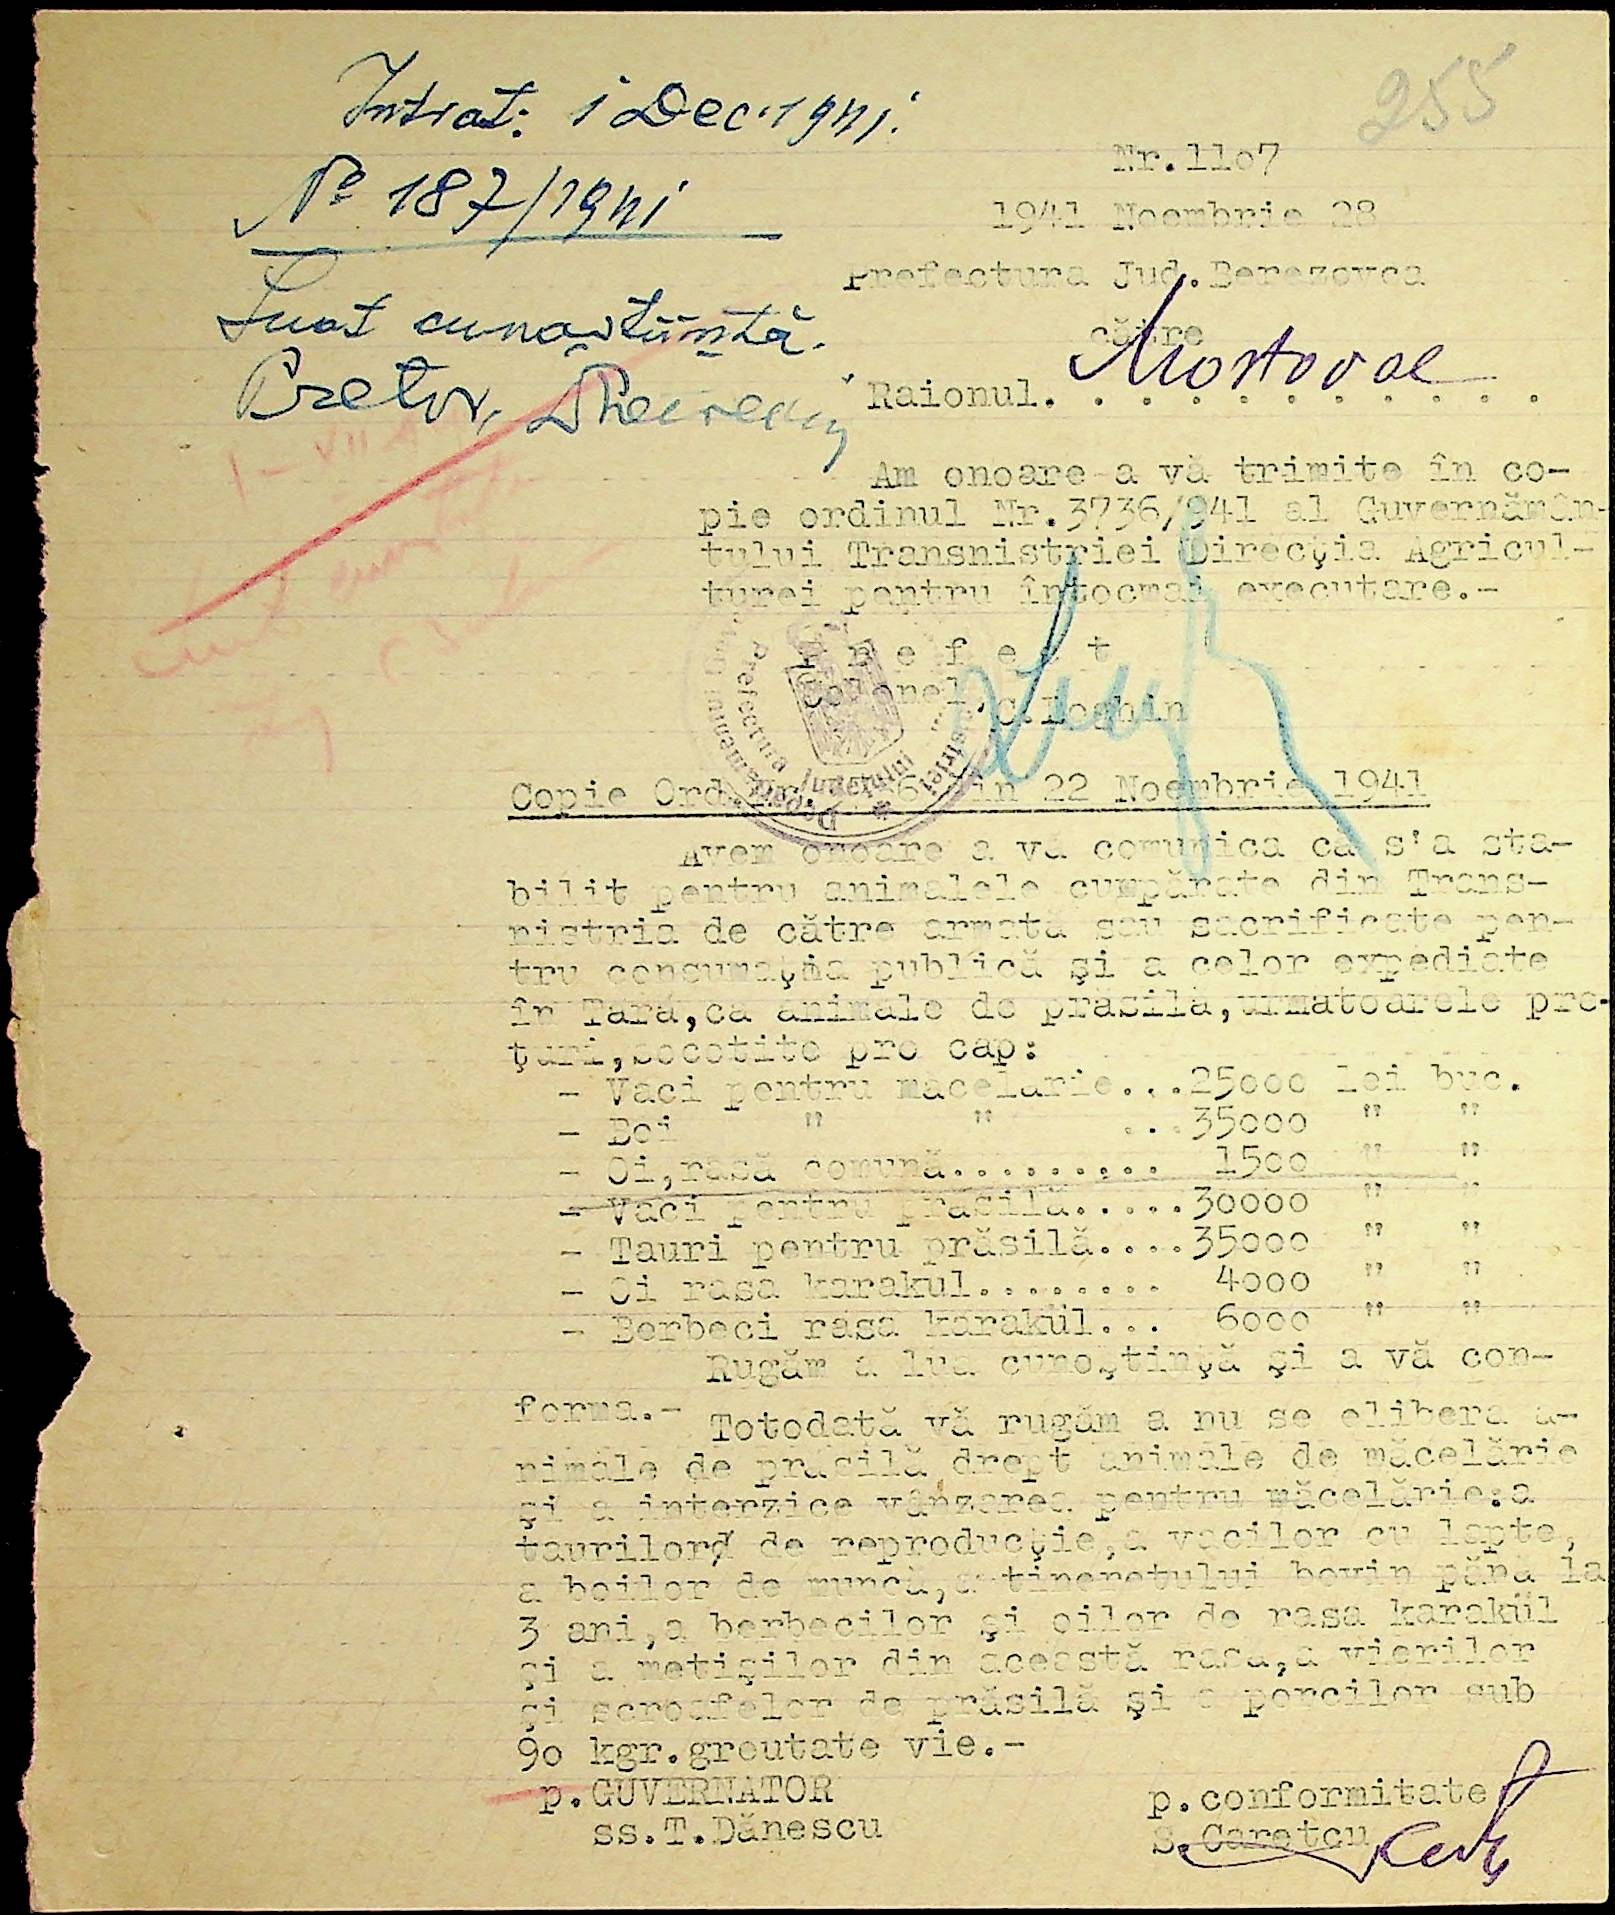 255
Intrat: 1 Dec. 1941.
Nº 187/1941
Luat cunoștiință.
Pretor,
Nr.11o7
1941 Noembrie 28
Prefectura Jud.Berezovca
către
Raionul. Mostovoe . . . . . . . . . .
Am onoare a vă trimite în co-
pie ordinul Nr.3736/941 al Guvernămân-
tului Transnistriei Direcţia Agricul-
turei pentru întocmai executare.-
P r e f e c t
Colonel,
Prefectura Judeţului
Copie Ord. Nr. 3736 din 22 Noembrie 1941
Avem onoare a vă comunica că s'a sta-
bilit pentru animalele cumpărate din Trans-
nistria de către armată sau sacrificate pen-
tru consumaţia publică şi a celor expediate
în Ţară,ca animale de prăsilă,urmatoarele pre-
ţuri,socotite pre cap:
- Vaci pentru macelarie...25ooo lei buc.
- Boi " " ...35ooo " "
- Oi,rasă comună.......... 15oo " "
- Vaci pentru prăsilă.....3oooo " "
- Tauri pentru prăsilă....35ooo " "
- Oi rasa karakul......... 4ooo " "
- Berbeci rasa karakül... 6ooo " "
Rugăm a lua cunoştinţă şi a vă con-
forma.-
Totodată vă rugăm a nu se elibera a-
nimale de prăsilă drept animale de măcelărie
şi a interzice vânzarea pentru măcelărie:a
taurilor de reproducţie,a vacilor cu lapte,
a boilor de muncă,a tineretului bovin până la
3 ani,a berbecilor şi oilor de rasa karakül
şi a metişilor din această rasa,a vierilor
şi scroafelor de prăsilă şi a porcilor sub
9o kgr.greutate vie.-
p.GUVERNATOR
ss.T.Dănescu
p.conformitate
S.Caretcu